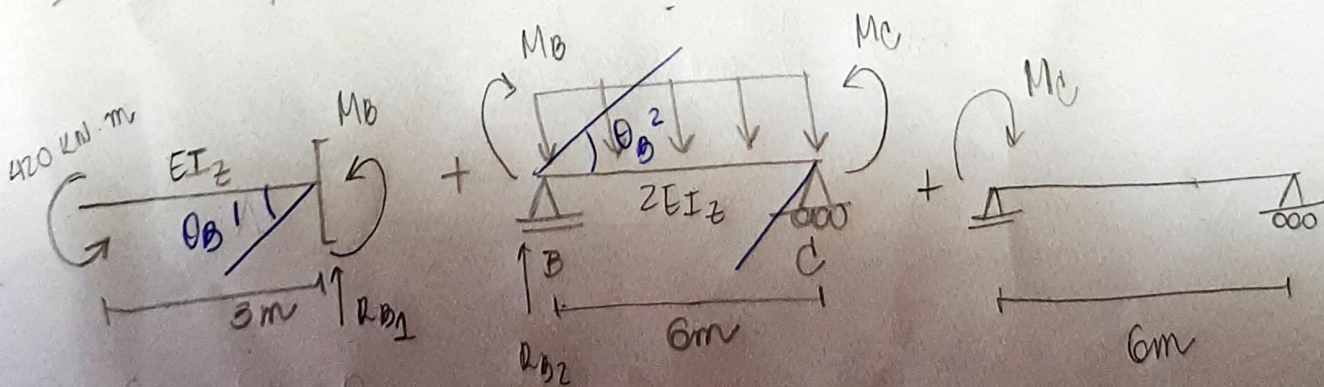 420 KN·m
EI_z
θ_B^1
M_B
3m
R_B1
+
M_B
θ_B^2
2EI_z
M_C
B
C
R_B2
6m
+
M_C
6m